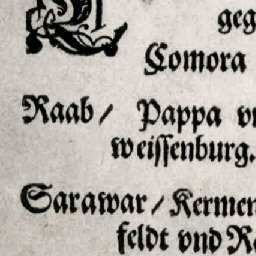 geg
Comora
Raab/ Pappa vn
weissenburg.
Sarawar/Kermen
feldt vnd Re